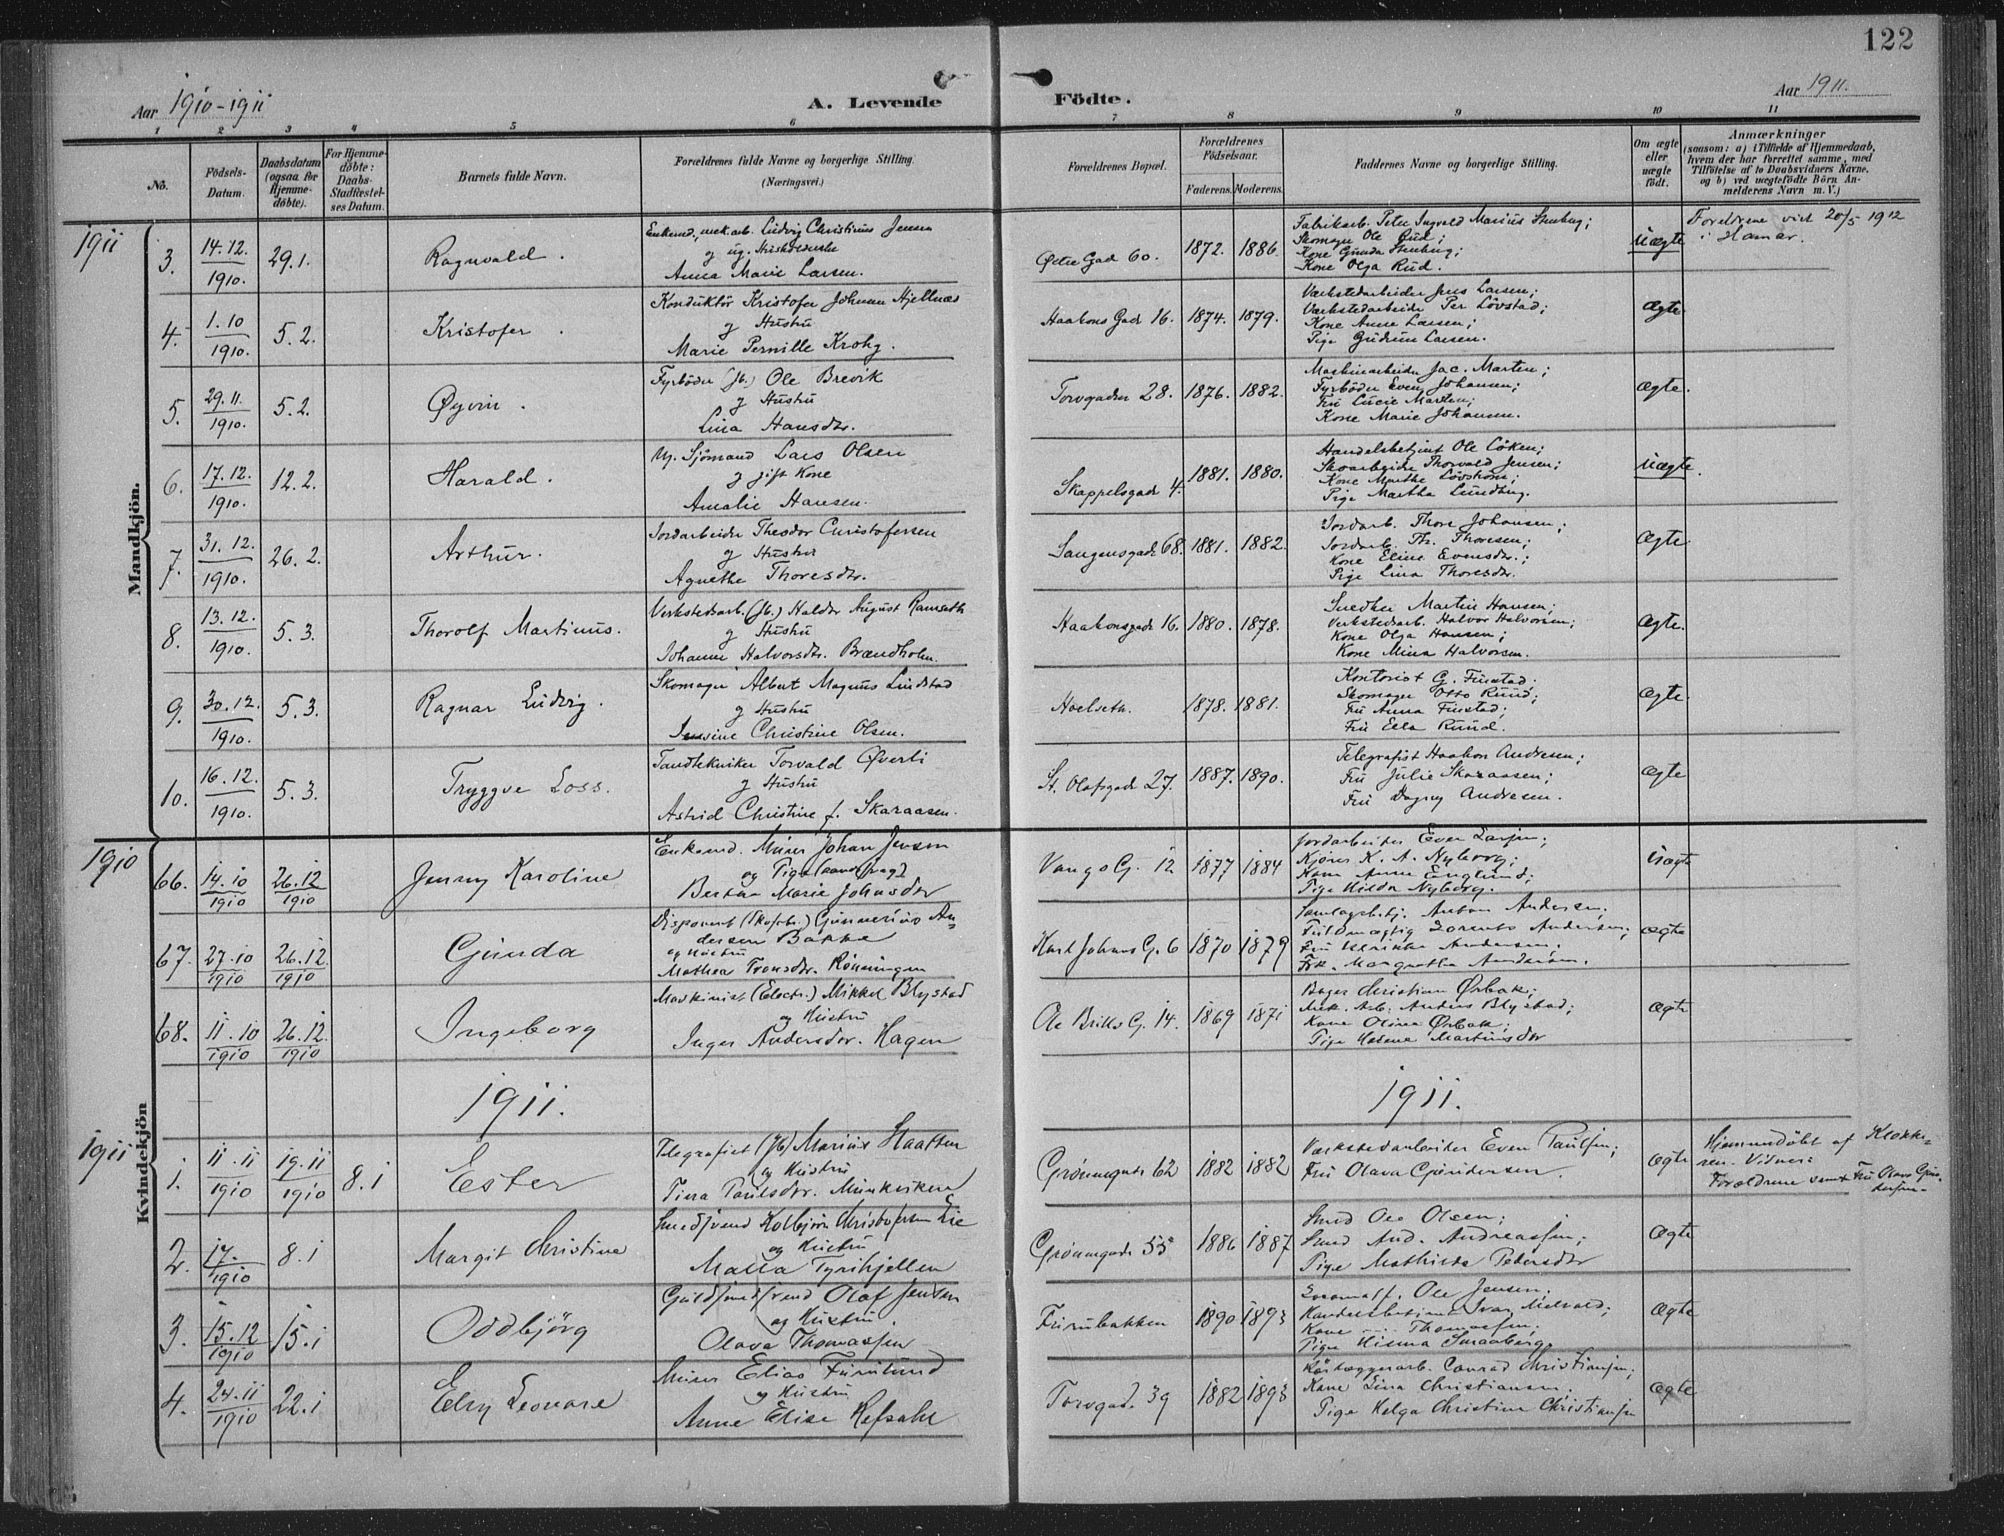 122
Aar 1910-1911
A. Levende
Födte.
Aar 1911.
1 2 3 4 5 6 7 8 9 10 11
No.
Födsels-Datum.
Daabsdatum (ogsaa for Hjemme-döbte).
For Hjemme-döbte: Daabs-Stadfestel-ses Datum.
Barnets fulde Navn.
Forældrenes fulde Navne og borgerlige Stilling.
(Næringsvei.)
Forældrenes Bopæl.
Forældrenes Födselsaar.
Faderens. Moderens.
Faddernes Navne og borgerlige Stilling.
Om ægte eller uægte födt.
Anmærkninger
(saasom: a) i Tilfælde af Hjemmedaab,
hvem der har forrettet samme, med
Tilföielse af to Daabsvidners Navne,
og b) ved uægtefödte Börn An-
melderens Navn m. V.)
Mandkjön.
1911
3. 14.12. 1910. 29.1. Ragnvald.
Ludvig Christinus Jensen
og ug.
Anna Marie Larsen.
Østre Gad 60. 1872. 1886.
Fabrikarb. Peter Ingvald Marius Stenberg;
Skomager Ole Rud;
Kone Gunda Stenberg;
Kone Olga Rud.
Uægte
Foreldrene viet 20/5 1912
i Hamar.
4. 1.10 1910. 5.2. Kristofer.
Konduktör Kristofer Johansen Hjellnæs
og Hustru
Marie Pernille Krohg.
Haakons Gad 16. 1874. 1879.
Værkstedarbeider Jens Larsen;
Værkstedarbeider Per Lövstad;
Kone Anne Larsen;
Pige Gudrun Larsen.
Ægte
5. 29.11. 1910. 5.2. Øyvin.
Fyrböder (Jb.) Ole Brevik
og Hustru
Lina Hansdtr.
Torvgaden 28. 1876. 1882.
Maskinarbeider Jac. Marten;
Fyrböder Even Johansen;
Fru Lucie Marten;
Kone Marie Johansen.
Ægte.
6. 17.12. 1910. 12.2. Harald.
Ug. Sjömand Lars Olsen
og gift Kone
Amalie Hansen.
Skappelsgade 4. 1881. 1880.
Handelsbetjent Ole Löken;
Skoarbeider Thorvald Jensen;
Kone Marthe
Pige Martha Lundberg.
Uægte.
7. 31.12. 1910. 26.2. Arthur.
Jordarbeider Theodor Christofersen
og Hustru
Agnethe Thoresdtr.
Sangensgade 68. 1881. 1882.
Jordarb. Thore Johansen;
Jordarb. Th. Thoresen;
Kone Eline Evensdtr.;
Pige Lina Thoresdtr.
Ægte
8. 13.12. 1910. 5.3. Thorolf Martinus.
Verkstedsarb. (Jb.) Haldor August Ramseth
og Hustru
Johanne Halvorsdtr. Brændholm.
Haakonsgade 16. 1880. 1878.
Snedker Martin Hansen;
Verkstedarb. Halvor Halvorsen;
Kone Olga Hansen;
Kone Mina Halvorsen.
Ægte.
9. 30.12. 1910. 5.3. Ragnar Ludvig.
Skomager Albert Magnus Lindstad
og Hustru
Christine Olsen.
Hoelseth. 1878. 1881.
Kontorist G. Finstad;
Skomager Otto Ruud;
Fru Anna Finstad;
Fru Ella Ruud.
Ægte
10. 16.12. 1910. 5.3. Tryggve Loss.
Tandtekniker Torvald Øverli
og Hustru
Astrid Christine f. Skaraasen.
St. Olafsgade 27. 1887. 1890.
Telegrafist Haakon Andresen;
Fru Julie Skaraasen;
Fru Dagny Andresen.
Ægte
Kvindekjön
1910
66. 14.10 1910 26.12 1910 Jenny Karoline
Enkemd. Murer Johan Jensen
og Pige
Berthe Marie Johnsdtr
Vangs G. 12 1877 1884
Jordarbeider Even Larsen;
Kjörer K. A. Nyborg;
Kone Anne Englund;
Pige Hilda Nyborg.
Uægte
67. 27.10 1910 26.12 1910 Gunda
Disponent Gunnerius An-
dersen Bakke
og Hustru
Mathea Tronsdtr. Rönningen
Karl Johans G. 6 1870 1879
Anton Andersen;
Fuldmægtig Lorents Andersen;
Fru Ulrikke Andersen.
Frk. Margrethe Andersen.
Ægte
68. 11.10 1910 26.12. 1910 Ingeborg
Maskinist (Electr.) Mikkel Blystad
og Hustru
Inger Andersdtr. Hagen
Ole Briks G. 14. 1869 1871
Bager Christian Ørbak;
Mek. Arb. Anders Blystad;
Kone Oline Ørbak;
Pige Helene Martinsdtr
Ægte
1911. 1911.
1911
1. 11.11 1910 19.11 1910 8.1 Ester
Telegrafist (Jb) Marius Haatten
og Hustru
Tina Paulsdtr. Munkviken
Grönnegade 62 1882 1882
Værkstedarbeider Even Paulsen;
Fru Olava Gundersen.
Ægte
Hjemmedöbt af Klokke-
ren. Vidner:
Forældrene samt Fru Olava Gun-
dersen.
2. 17. 1910 8.1 Margit Christine
Smedsvend Kolbjörn Christofersen Lie
og Hustru
Malla Tyrihjellen
Grönnegade 55 1886 1887
Smed Ole Olsen;
Smed And. Andreassen;
Pige Mathilde Petersdtr
Ægte
3. 15.12 1910 15.1 Oddbjörg
Guldsmedsvend Olaf Jensen
og Hustru.
Olava Thomassen
Furubakken 1890 1893
Ole Jensen;
Handelsbetjent Ivar
Kone Thomassen;
Pige Smaaberg
Ægte
4. 24.11 1910 22.1 Elsy Leonore
Murer Elias Furulund
og Hustru
Anne Elise Refsahl
Torvgad. 39 1882 1893
Conrad Christiansen;
Kone Lina Christiansen;
Pige Helga Christine Christiansen
Ægte